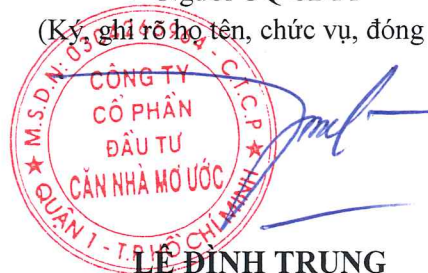 (Ký, ghi rõ họ tên, chức vụ, đóng
M.S.D.N: - C.T.C.P
CÔNG TY
CỔ PHẦN
ĐẦU TƯ
CĂN NHÀ MƠ ƯỚC
QUẬN 1 - T.P HỒ CHÍ MINH
LÊ ĐÌNH TRUNG